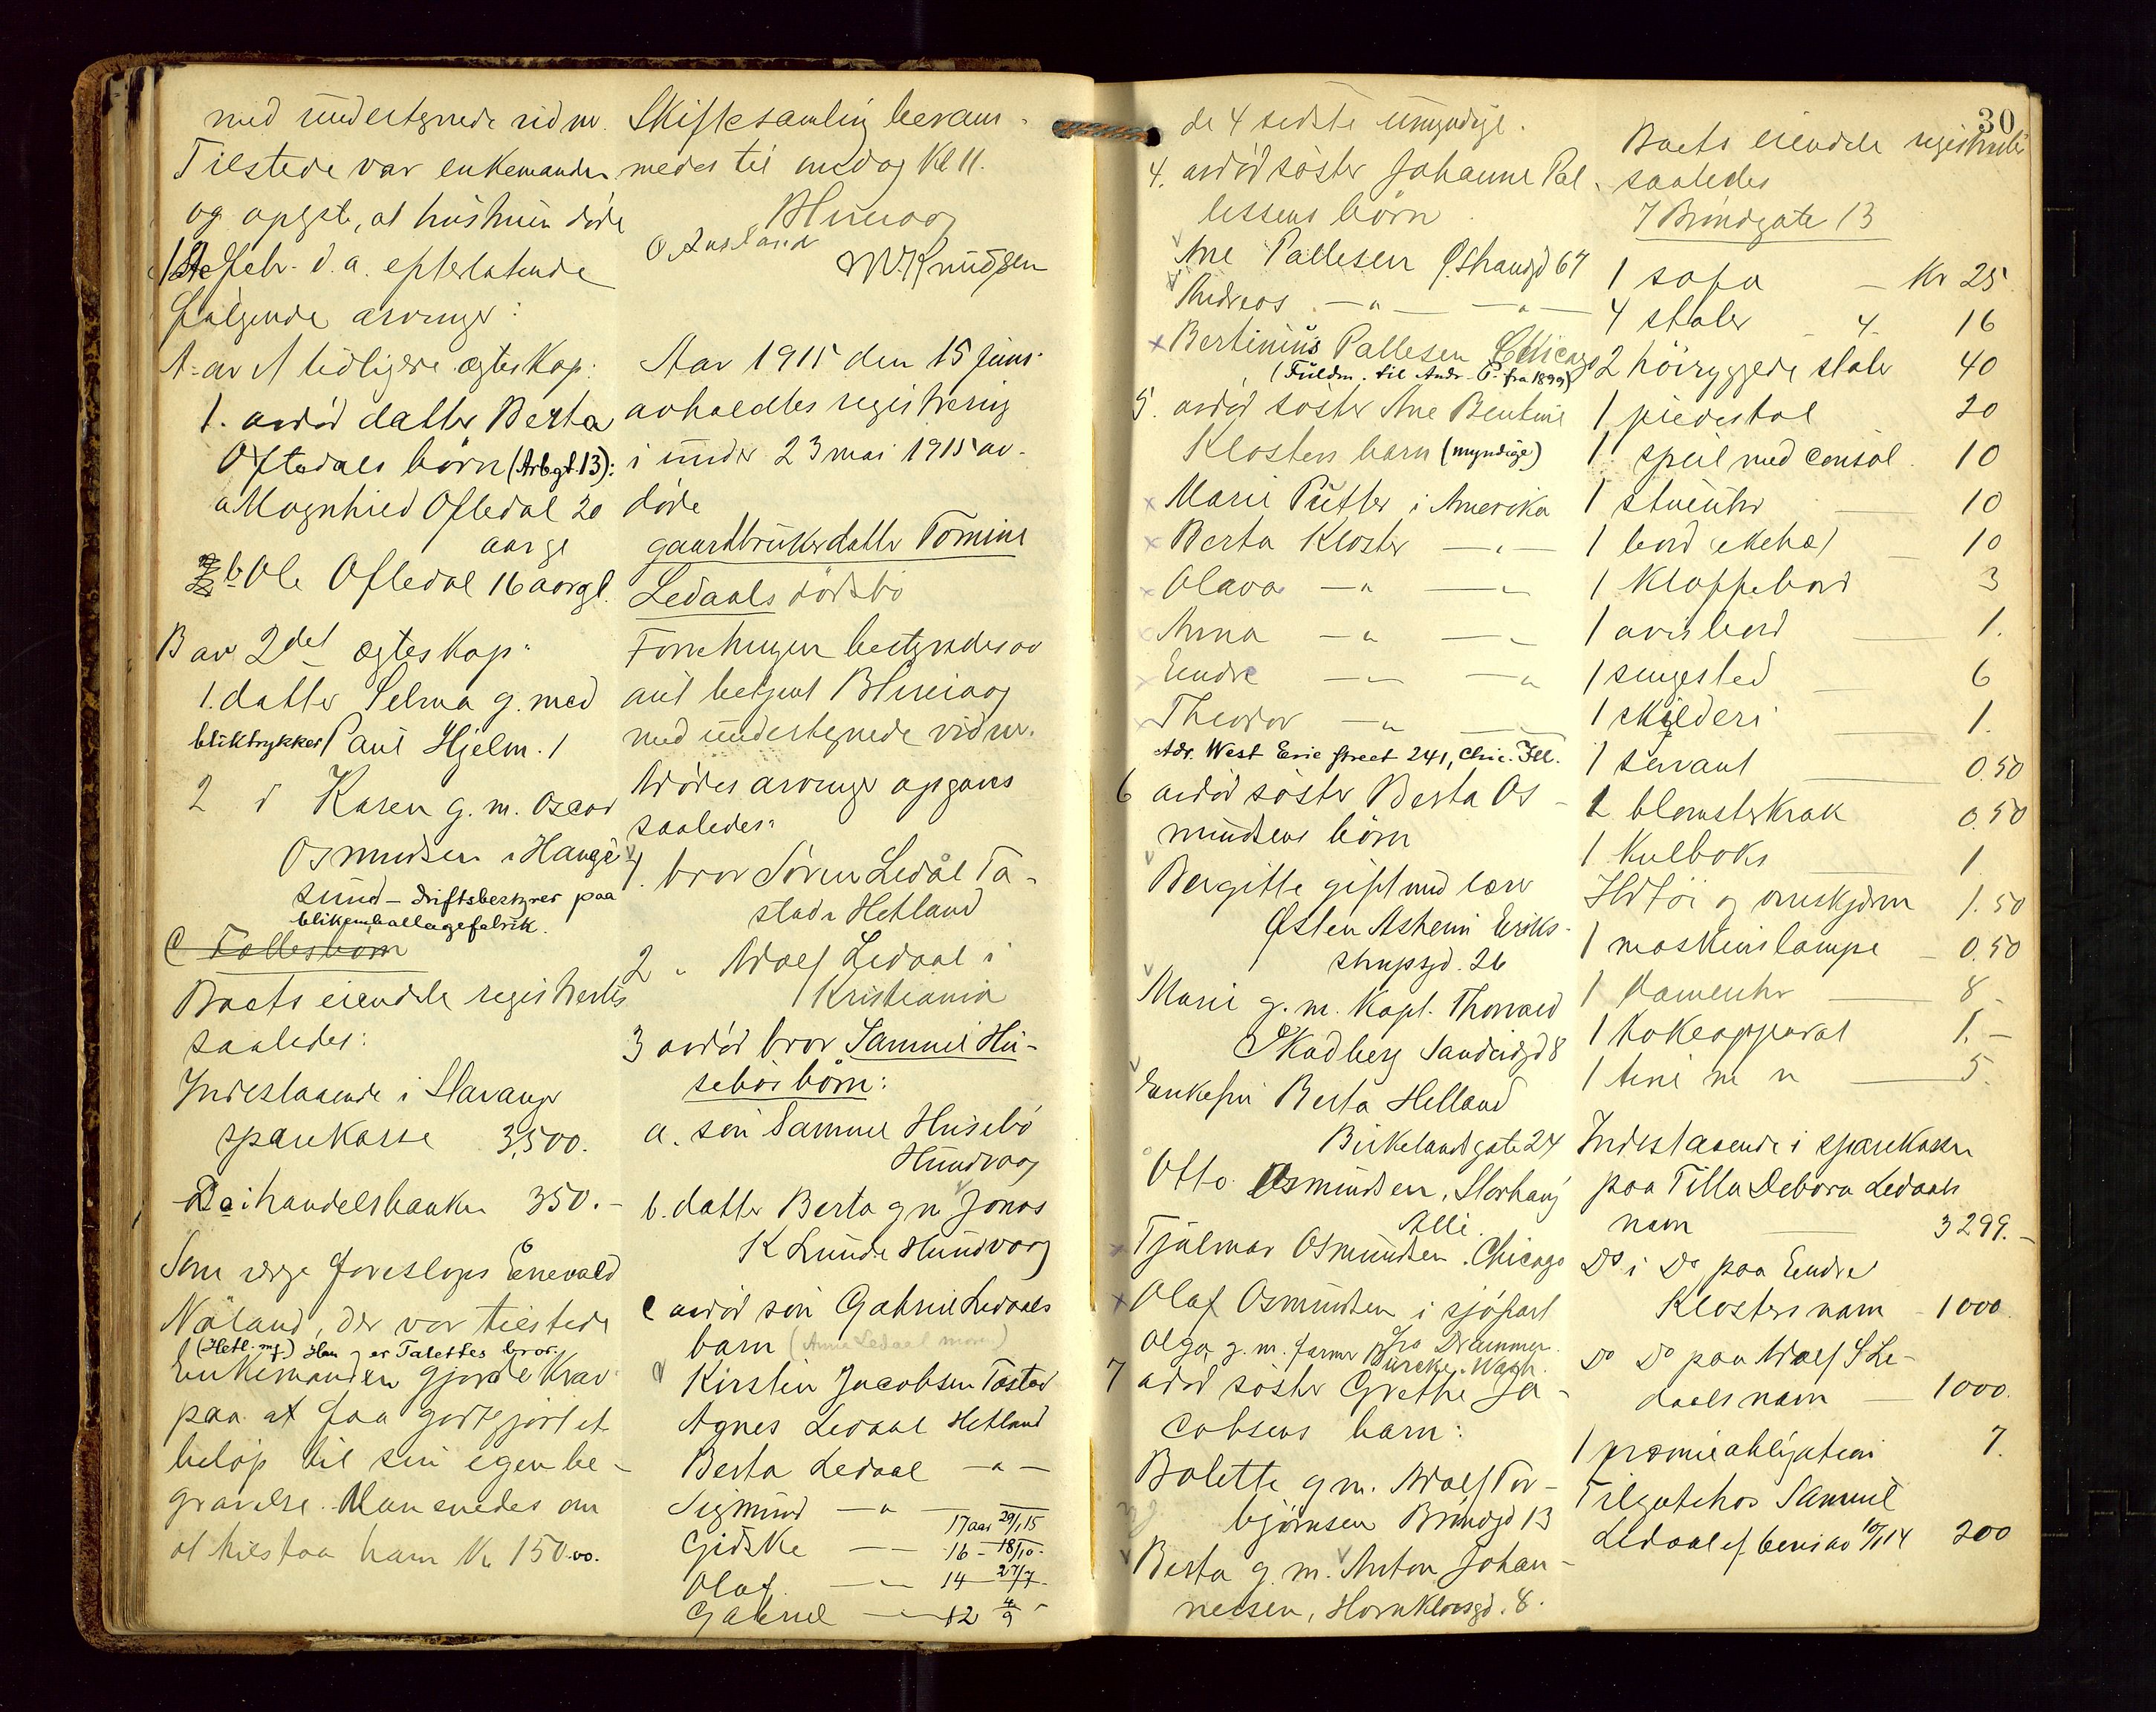 med undertegnede vidne.
Tilstede var enkemanden
og opgir, at hustruen døde
1ste febr. d.a. efterlatende
følgende arvinger:
A. av 1 tidligere ægteskap:
1. avdød datter Berta
Oftedals børn (Arbgt. 13):
a Magnhild Oftedal 20
aar gl
b Ole Oftedal 16 aar gl.
B av 2det ægteskap:
1. datter Selma g. med
bliktrykker Paul Hjelm.
2 d Karen g. m. Oscar
Osmundsen i Hauge
sund - driftsbestyrer paa
blikemballagefabrik.
C Fællesbarn
Boets eiendele registrertes
saaledes:
Indestaaende i Stavanger
sparekasse 3,500.
Do i handelsbanken 350.-
Som verge foresloges Enevald
Nåland, der var tilstede
(Hetl. mg.) Han er Talettes bror.
Enkemanden gjorde krav
paa at faa godtgjort et
beløp til sin egen be-
gravelse. Man enedes om
at tilstaa ham Kr 150.00.
Skiftesamling beram-
medes til onsdag Kl 11.
O. Ausland
W. Knudsen
Aar 1915 den 15 juni
avholdtes registrering
i under 23 mai 1915 av-
døde
gaardbrukerdatter Tomine
Ledaals dødsbo
Forretningen bestyredes av
med undertegnede vidne.
Avdødes arvinger opgaves
saaledes:
1. bror Søren Ledål Ta-
stad i Hetland
2 " Adolf Ledaal i
Kristiania
3 avdød bror Samuel Hu-
sebøs børn:
a. søn Samuel Husebø
Hundvaag
b. datter Berta g m Jonas
K Lunde Hundvaag
c avdød søn Gabriel Ledaals
barn (Anna Ledaal mor.)
Kirstin Jacobsen Tasted
Agnes Ledaal Hetland
Berta Ledaal -"-
Sigmund -"- 17 aar 29/1 15
Gidske -- 16 - 18/10 -
Olaf -- 14 27/7 -
Gabriel -"- 12 4/9 -
30
de 4 sidste umyndige.
4. avdød søster Johanne Pal-
lesens børn
Ane Pallesen Ø. Strandgd 67
Andreas -"- -"-
Bertinius Pallesen Chicago
(Fuldm. til Andr. P. fra 1899)
5. avdød søster Ane Bentine
Klosters barn (myndige)
Marie Putter i Amerika
Berta Kloster -"-
Olava -"- -"-
Anna -"- -"-
Endre -"- -"-
Theodor -"- -"-
Adr. West Erie Street 241, Chic. Ill.
6 avdød søster Berta Os-
mundsens børn
Bergitte gift med lærer
Østen Asheim Eriks-
strupsgd. 26
Marie g. m. Kapt. Thorvald
Skadberg Sandeidgd 8
Enkefru Berta Helland
Birkelandsgate 24
Otto Osmundsen, Storhaug
Alle.
Hjalmar Osmundsen. Chicago
Olaf Osmundsen i sjøfart
Olga g. m. farmer fra Drammen
7 avdød søster Grethe Ja-
cobsens barn:
Bolette g m. Adolf Tor-
bjørnsen Brøndgd 13
Berta g. m. Anton Johan-
nessen, Hornklovsgd. 8.
Boets eiendele registrertes
saaledes
I Brøndgate 13
1 sofa - Kr 25
4 stoler - 4. 16
2 høiryggede stoler 40
1 piedestal 20
1 speil med consol. 10
1 stueuhr 10
1 bord (eketræ) 10
1 Klaffebord 3
1 avisbord 1.
1 sengested 6
1 skilderi 1.
1 servant 0.50
1 blomsterkrak 0.50
1 kulboks 1
Ildtøi og ovnskjerm 1.50
1 maskinslampe 0.50
1 dameuhr 8-
1 Kokeapparat 1.-
1 tine m n 5.
Indestaaende i sparekassen
paa Tilla Debora Ledaals
navn 3299.-
Do i Do paa Endre
Klosters navn - 1000.
Do Do paa Adolf S Le-
daals navn - 1000.
1 præmieobligation 7.
Tilgode hos Samuel
Ledaal ef. bevis av 10/1 14 200